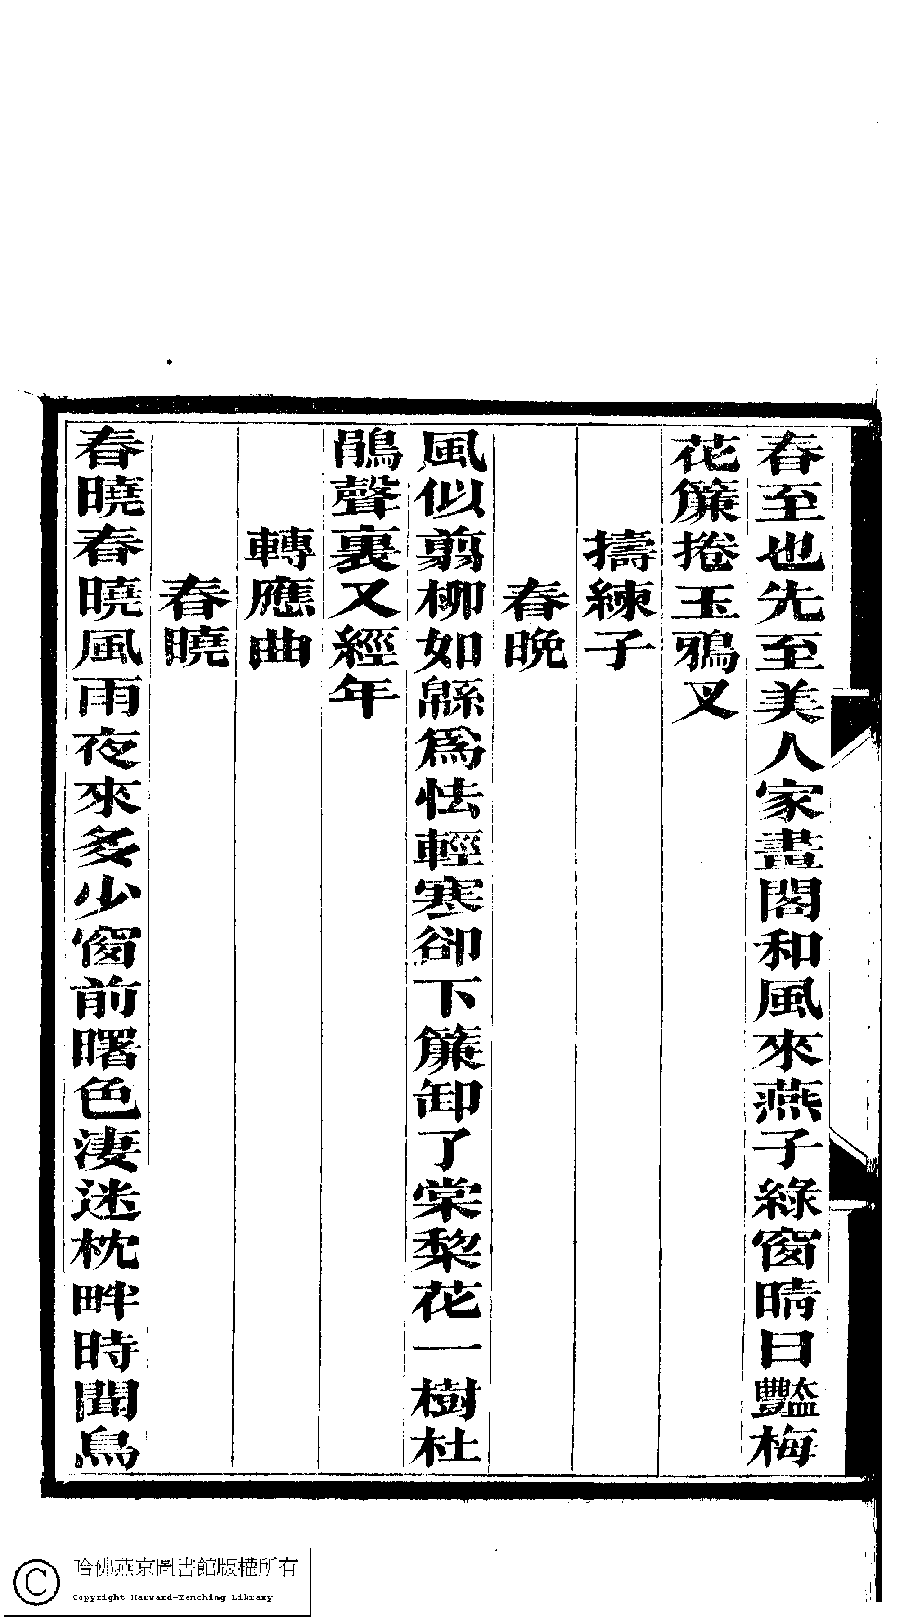 春至也先至美人家畫閣和風來燕子綠窗晴日豔梅
花簾捲玉鴉叉
擣練子
春晚
風似翦柳如緜爲怯輕寒卻下簾卸了棠梨花一樹杜
鵑聲裏又經年
轉應曲
春曉
春曉春曉風雨夜來多少窗前曙色淒迷枕畔時聞鳥
哈佛燕京圖書館版權所有
Copyright Harvard-Yenching Library